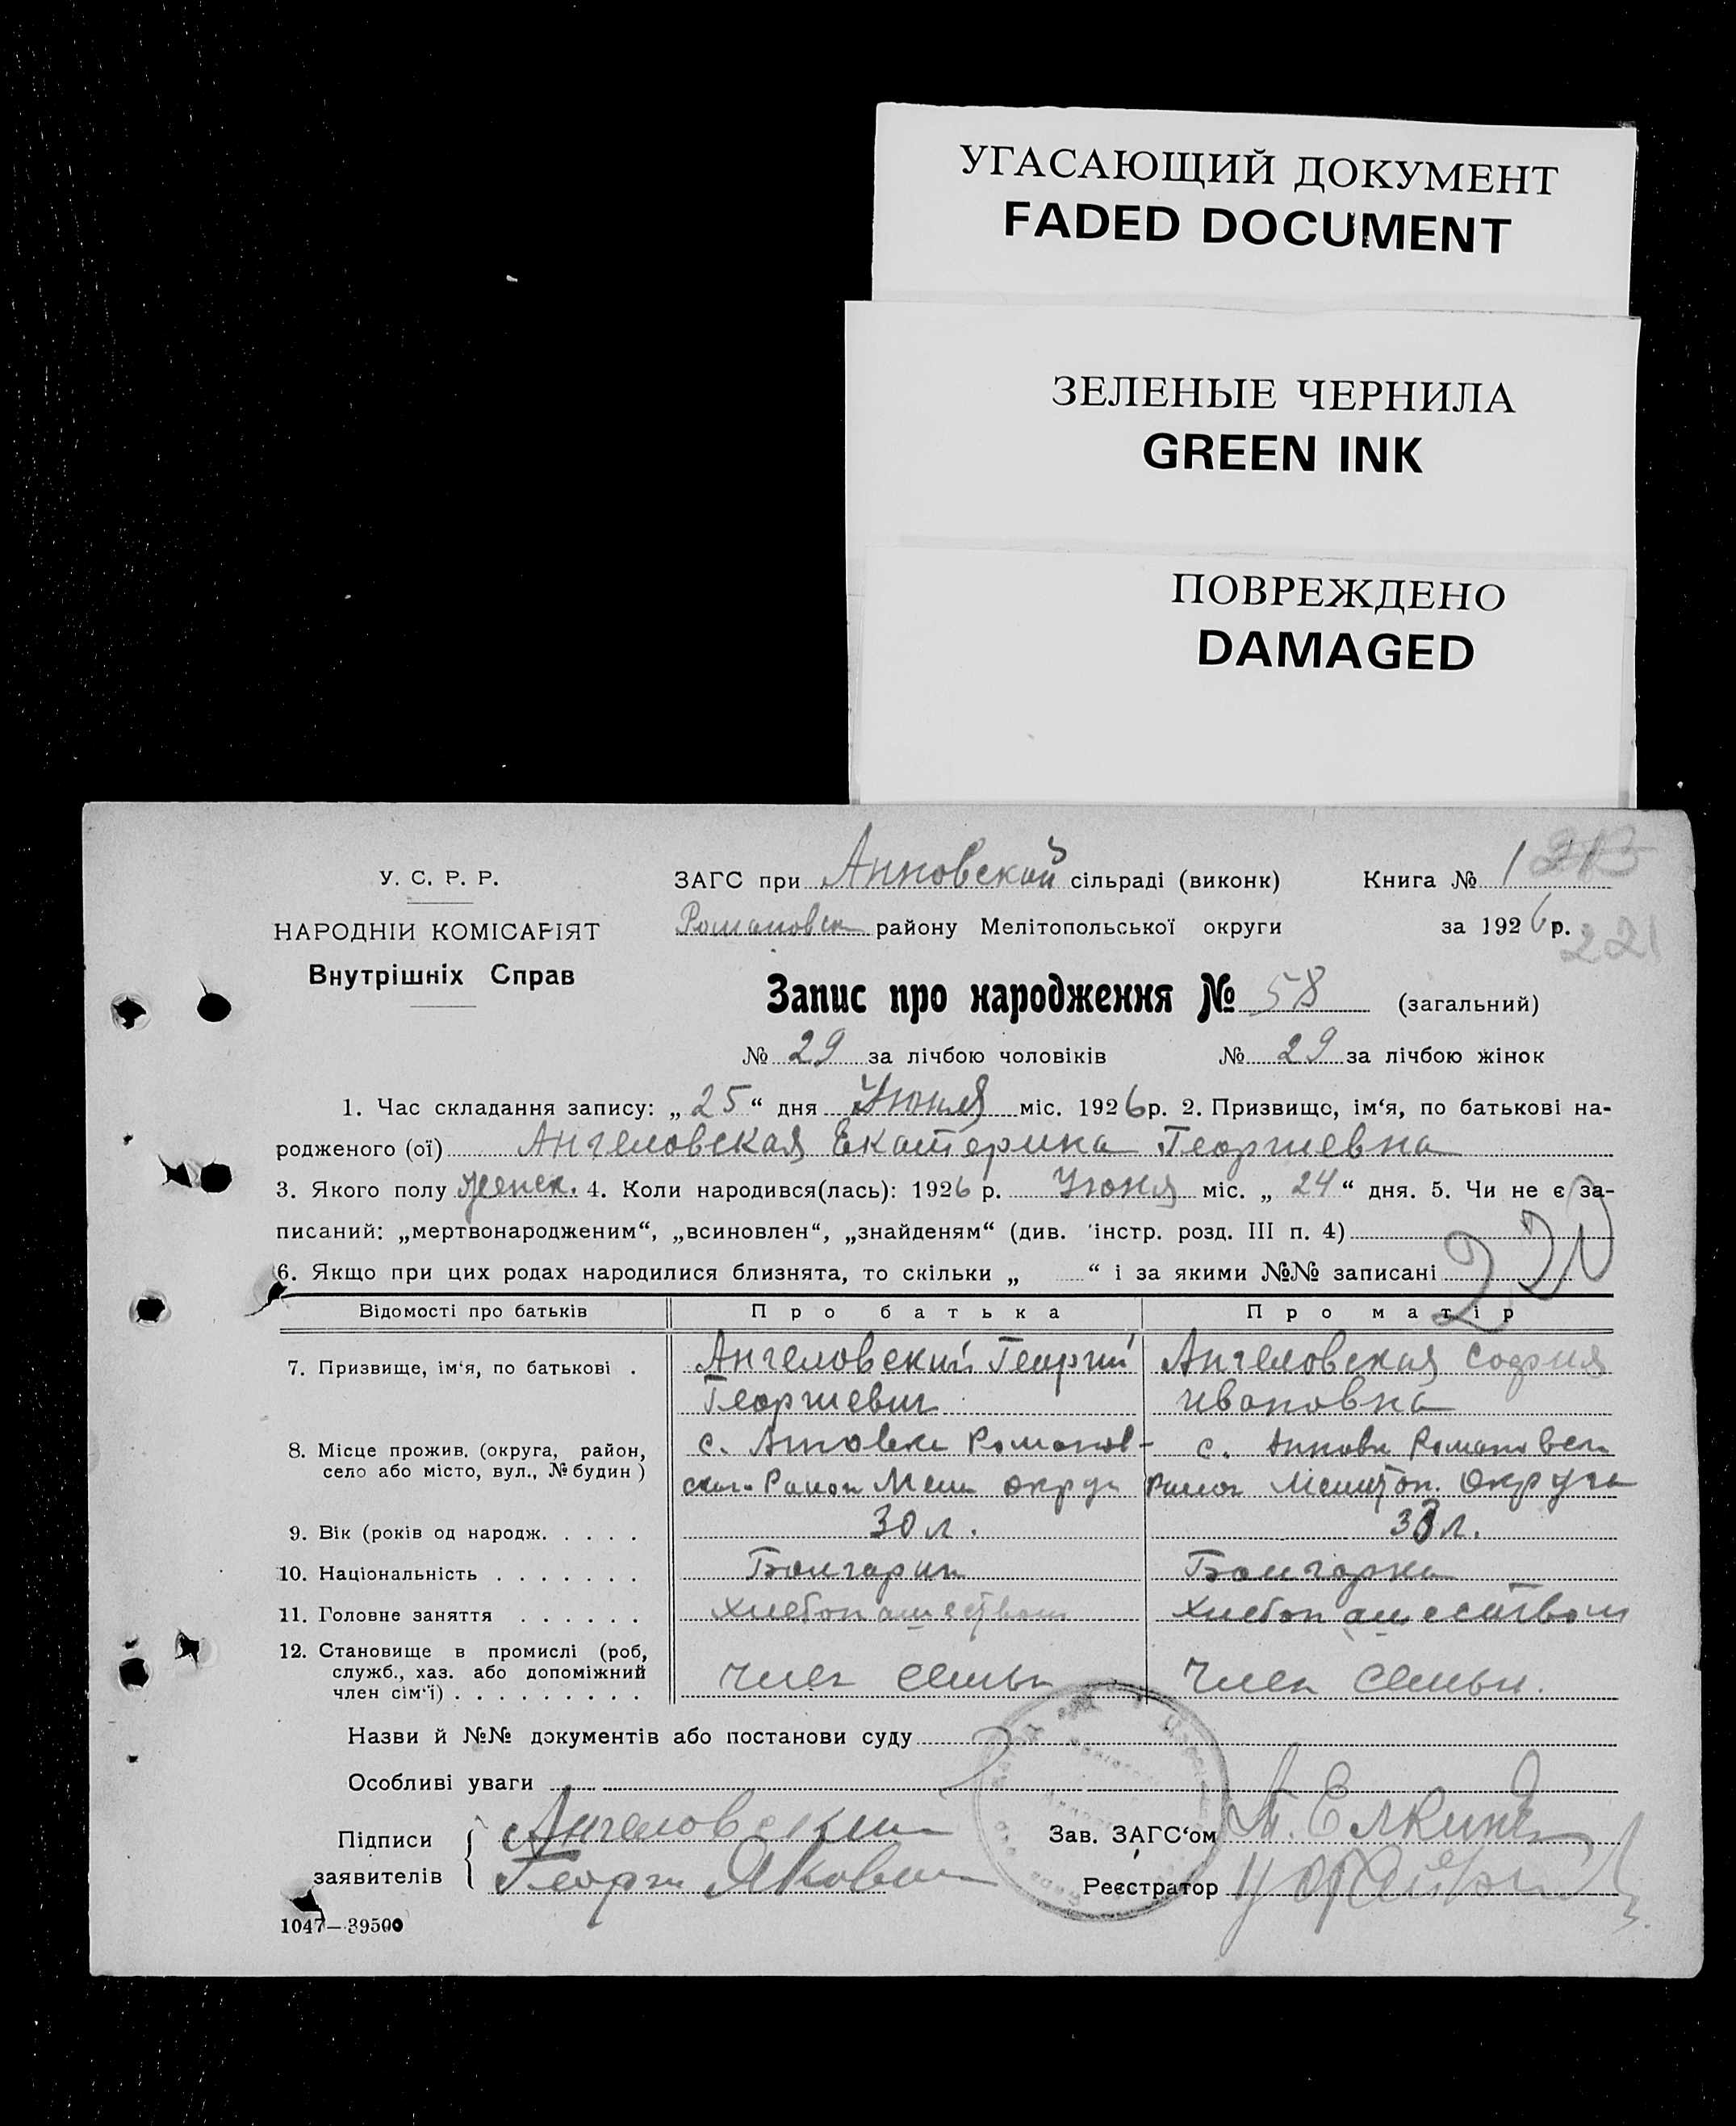 УГАСАЮЩИЙ ДОКУМЕНТ
FADED DOCUMENT
ЗЕЛЕНЫЕ ЧЕРНИЛА
GREEN INK
ПОВРЕЖДЕНО
DAMAGED
У. С. Р. Р.
ЗАГС при Анновской сільраді (виконк) Книга № 1 213
НАРОДНІЙ КОМІСАРІЯТ
Романовск району Мелітопольської округи за 1926 р.
221
Внутрішніх Справ
Запис про народження № 58 (загальний)
№ 29 за лічбою чоловіків № 29 за лічбою жінок
1. Час складання запису: „25“ дня Июня міс. 1926 р. 2. Призвище, ім‘я, по батькові на-
родженого (ої) Ангеловская Екатерина Георгиевна
3. Якого полу женск. 4. Коли народився(лась): 1926 р. Июня міс. „24“ дня. 5. Чи не є за-
писаний: „мертвонародженим“, „всиновлен“, „знайденям“ (див. інстр. розд. III п. 4)
220
6. Якщо при цих родах народилися близнята, то скільки „ “ і за якими №№ записані
Відомості про батьків Про батька Про матір
7. Призвище, ім‘я, по батькові . Ангеловский Георгий Ангеловская София
Георгиевич Ивановна
8. Місце прожив. (округа, район, с. Анновка Романов- с. Анновка Романовск
село або місто, вул., № будин) ског. Район Мели округи Район Мелитоп. Округа
9. Вік (років од народж. . . . . 30 л. 33 л.
10. Національність . . . . . . . Болгарин Болгарка
11. Головне заняття . . . . . . Хлебопашеством Хлебопашеством
12. Становище в промислі (роб,
служб., хаз. або допоміжний Член семьи Член семьи.
член сім‘ї) . . . . . . . . . .
Назви й №№ документів або постанови суду
Особливі уваги
Підписи Ангеловский Зав. ЗАГС‘ом
заявителів Георги Яковлев Реєстратор
1047—39500